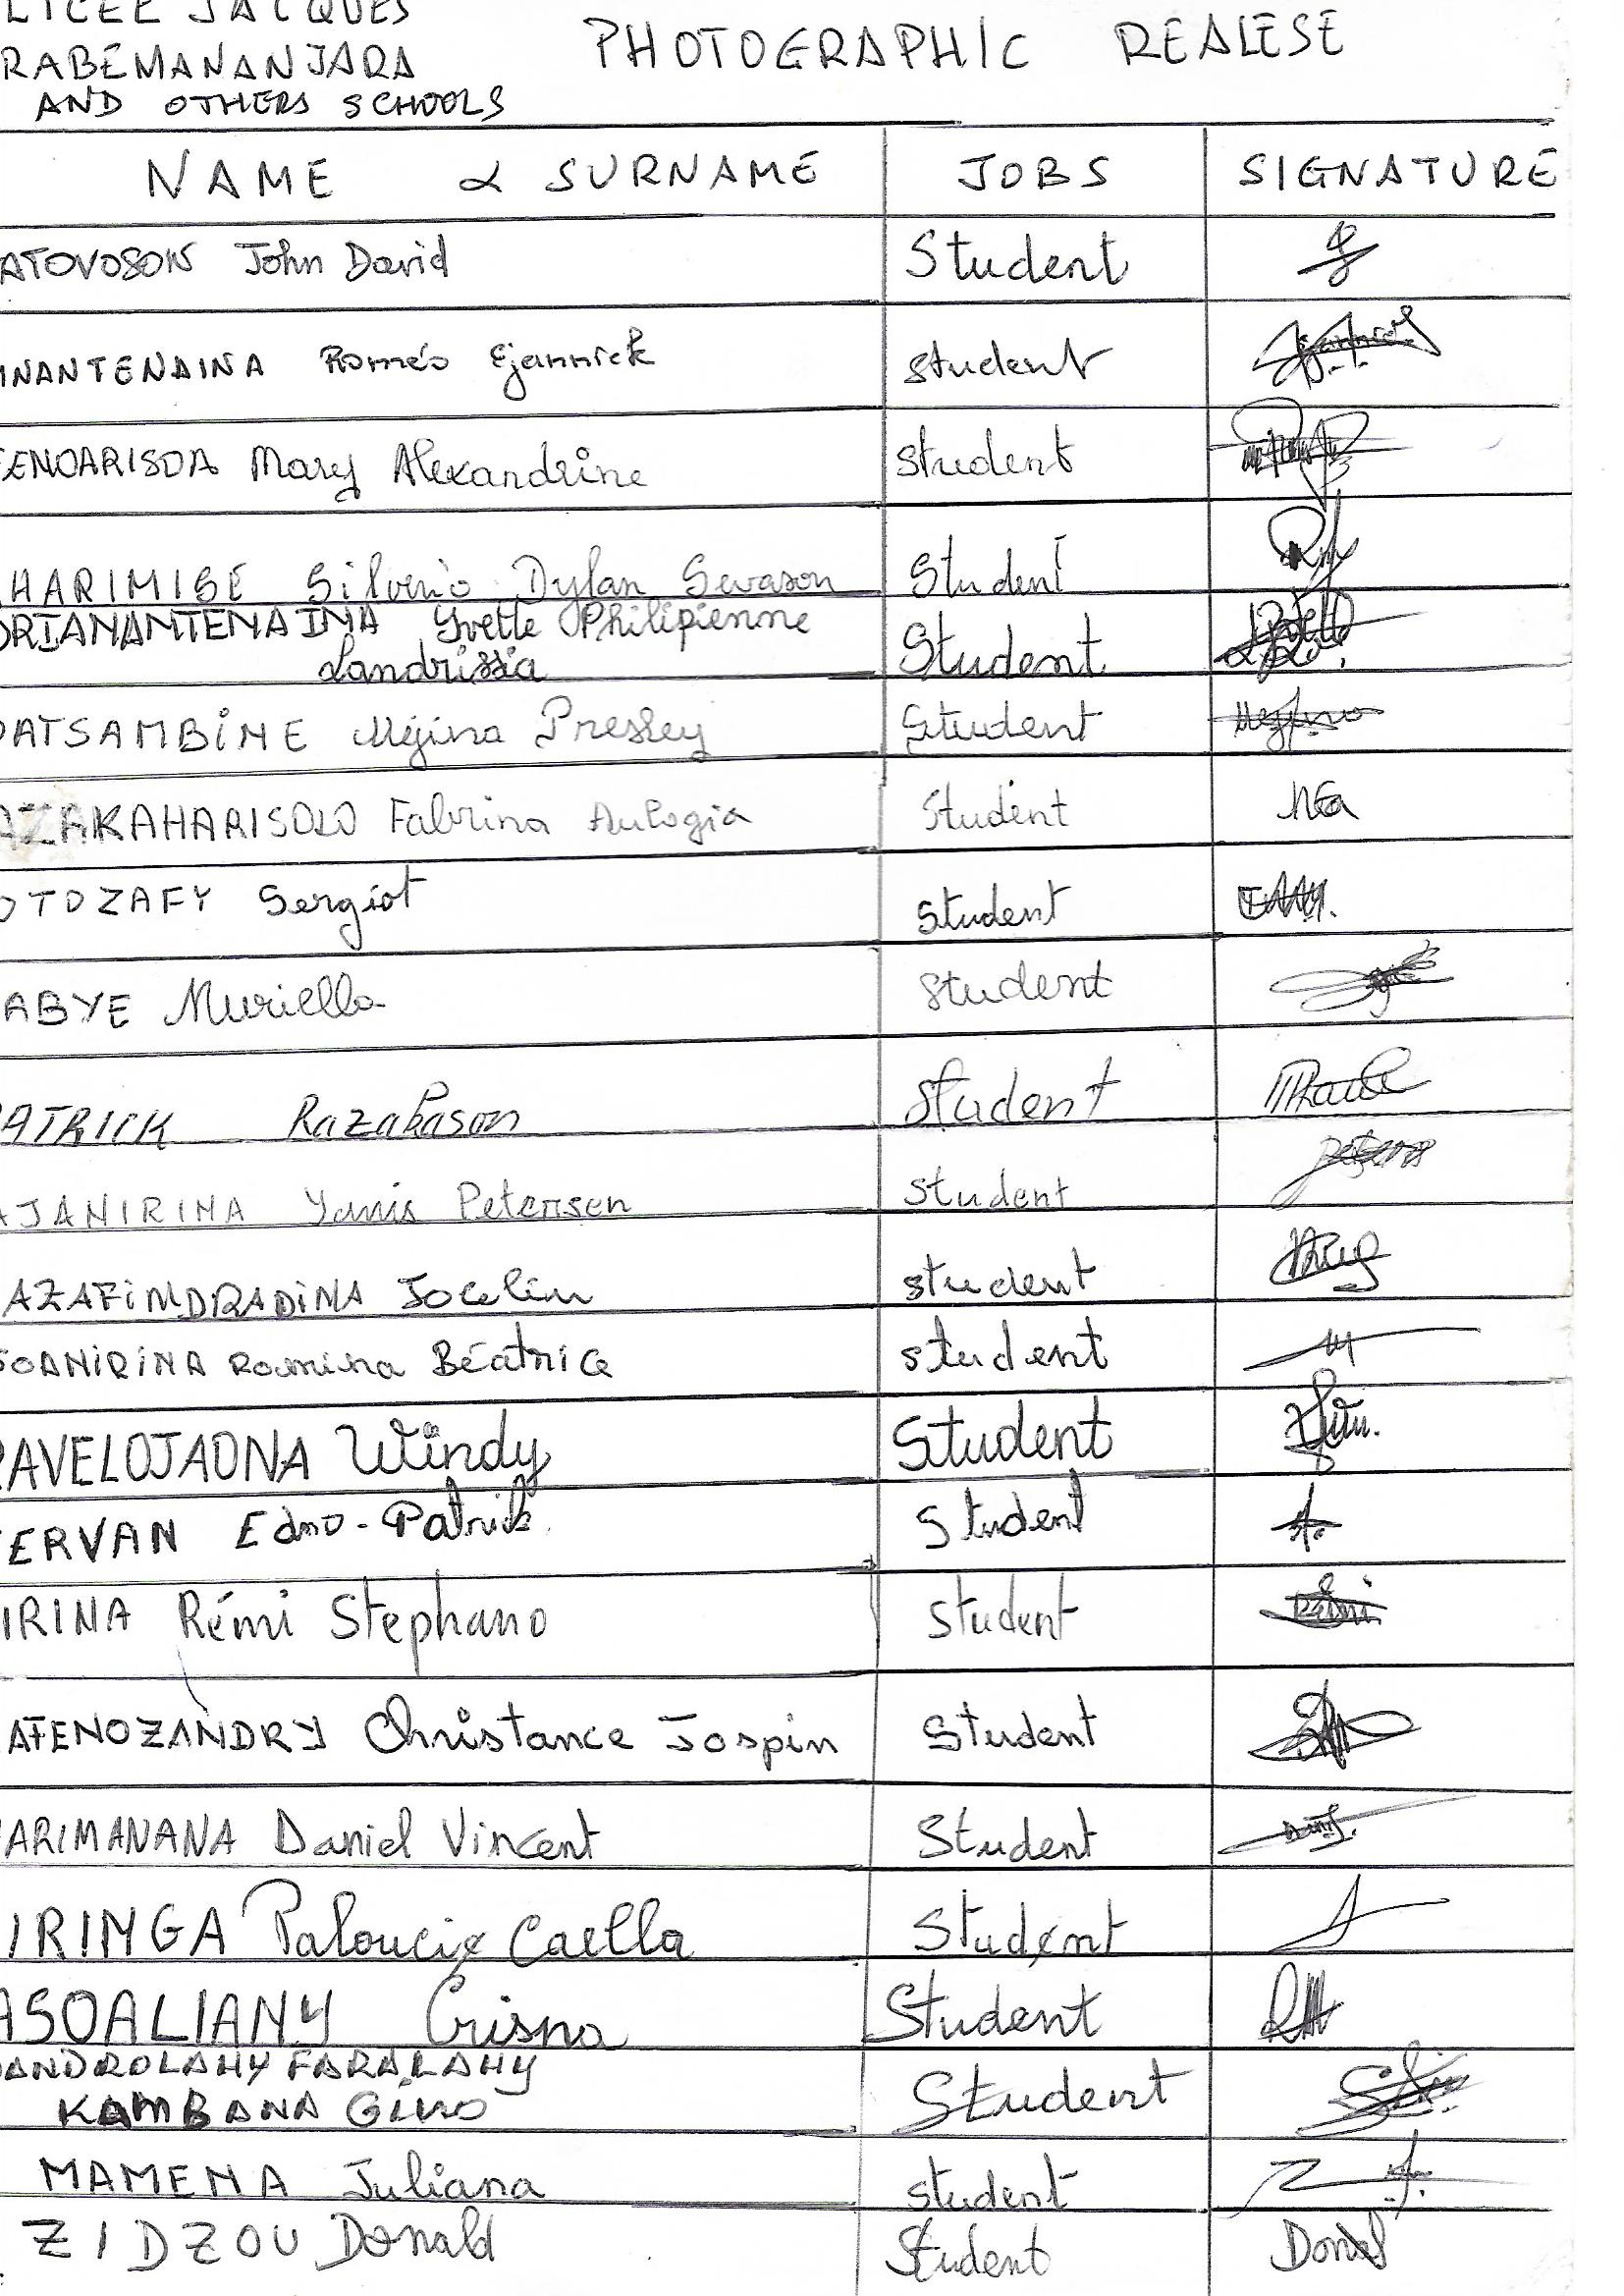 LYCEE JACQUES
RABEMANANJARA
AND OTHERS SCHOOLS
PHOTOGRAPHIC REALESE
NAME & SURNAME JOBS SIGNATURE
ATOVOSON John David Student
INANTENAINA Roméo Ejannick student
ENOARISOA Mary Alexandrine student
HARIMISE Silverio Dylan Sevason Student
DRIANANTENAINA Yvette Philipienne
Landrissia Student
OATSAMBINE Méjina Presley Student
AZAKAHARISOLO Fabrina Aulogia Student
OTOZAFY Sergiot Student
ABYE Muriella Student
ATRICK Razakason Student
AJANIRINA Yanis Petersen Student
AZAFINDRADINA Jocelin student
SOANIRINA Romina Béatrice student
RAVELOJAONA Windy Student
ERVAN Edno-Patrick Student
IRINA Rémi Stephano Student
AFENOZANDRY Christance Jospin Student
ARIMANANA Daniel Vincent Student
IRINGA Paloucie Caella Student
ASOALIANY Crisna Student
ANDROLAHY FARALAHY
KAMBANA Gino Student
MAMENA Juliana student
ZIDZOU Donald Student Donald